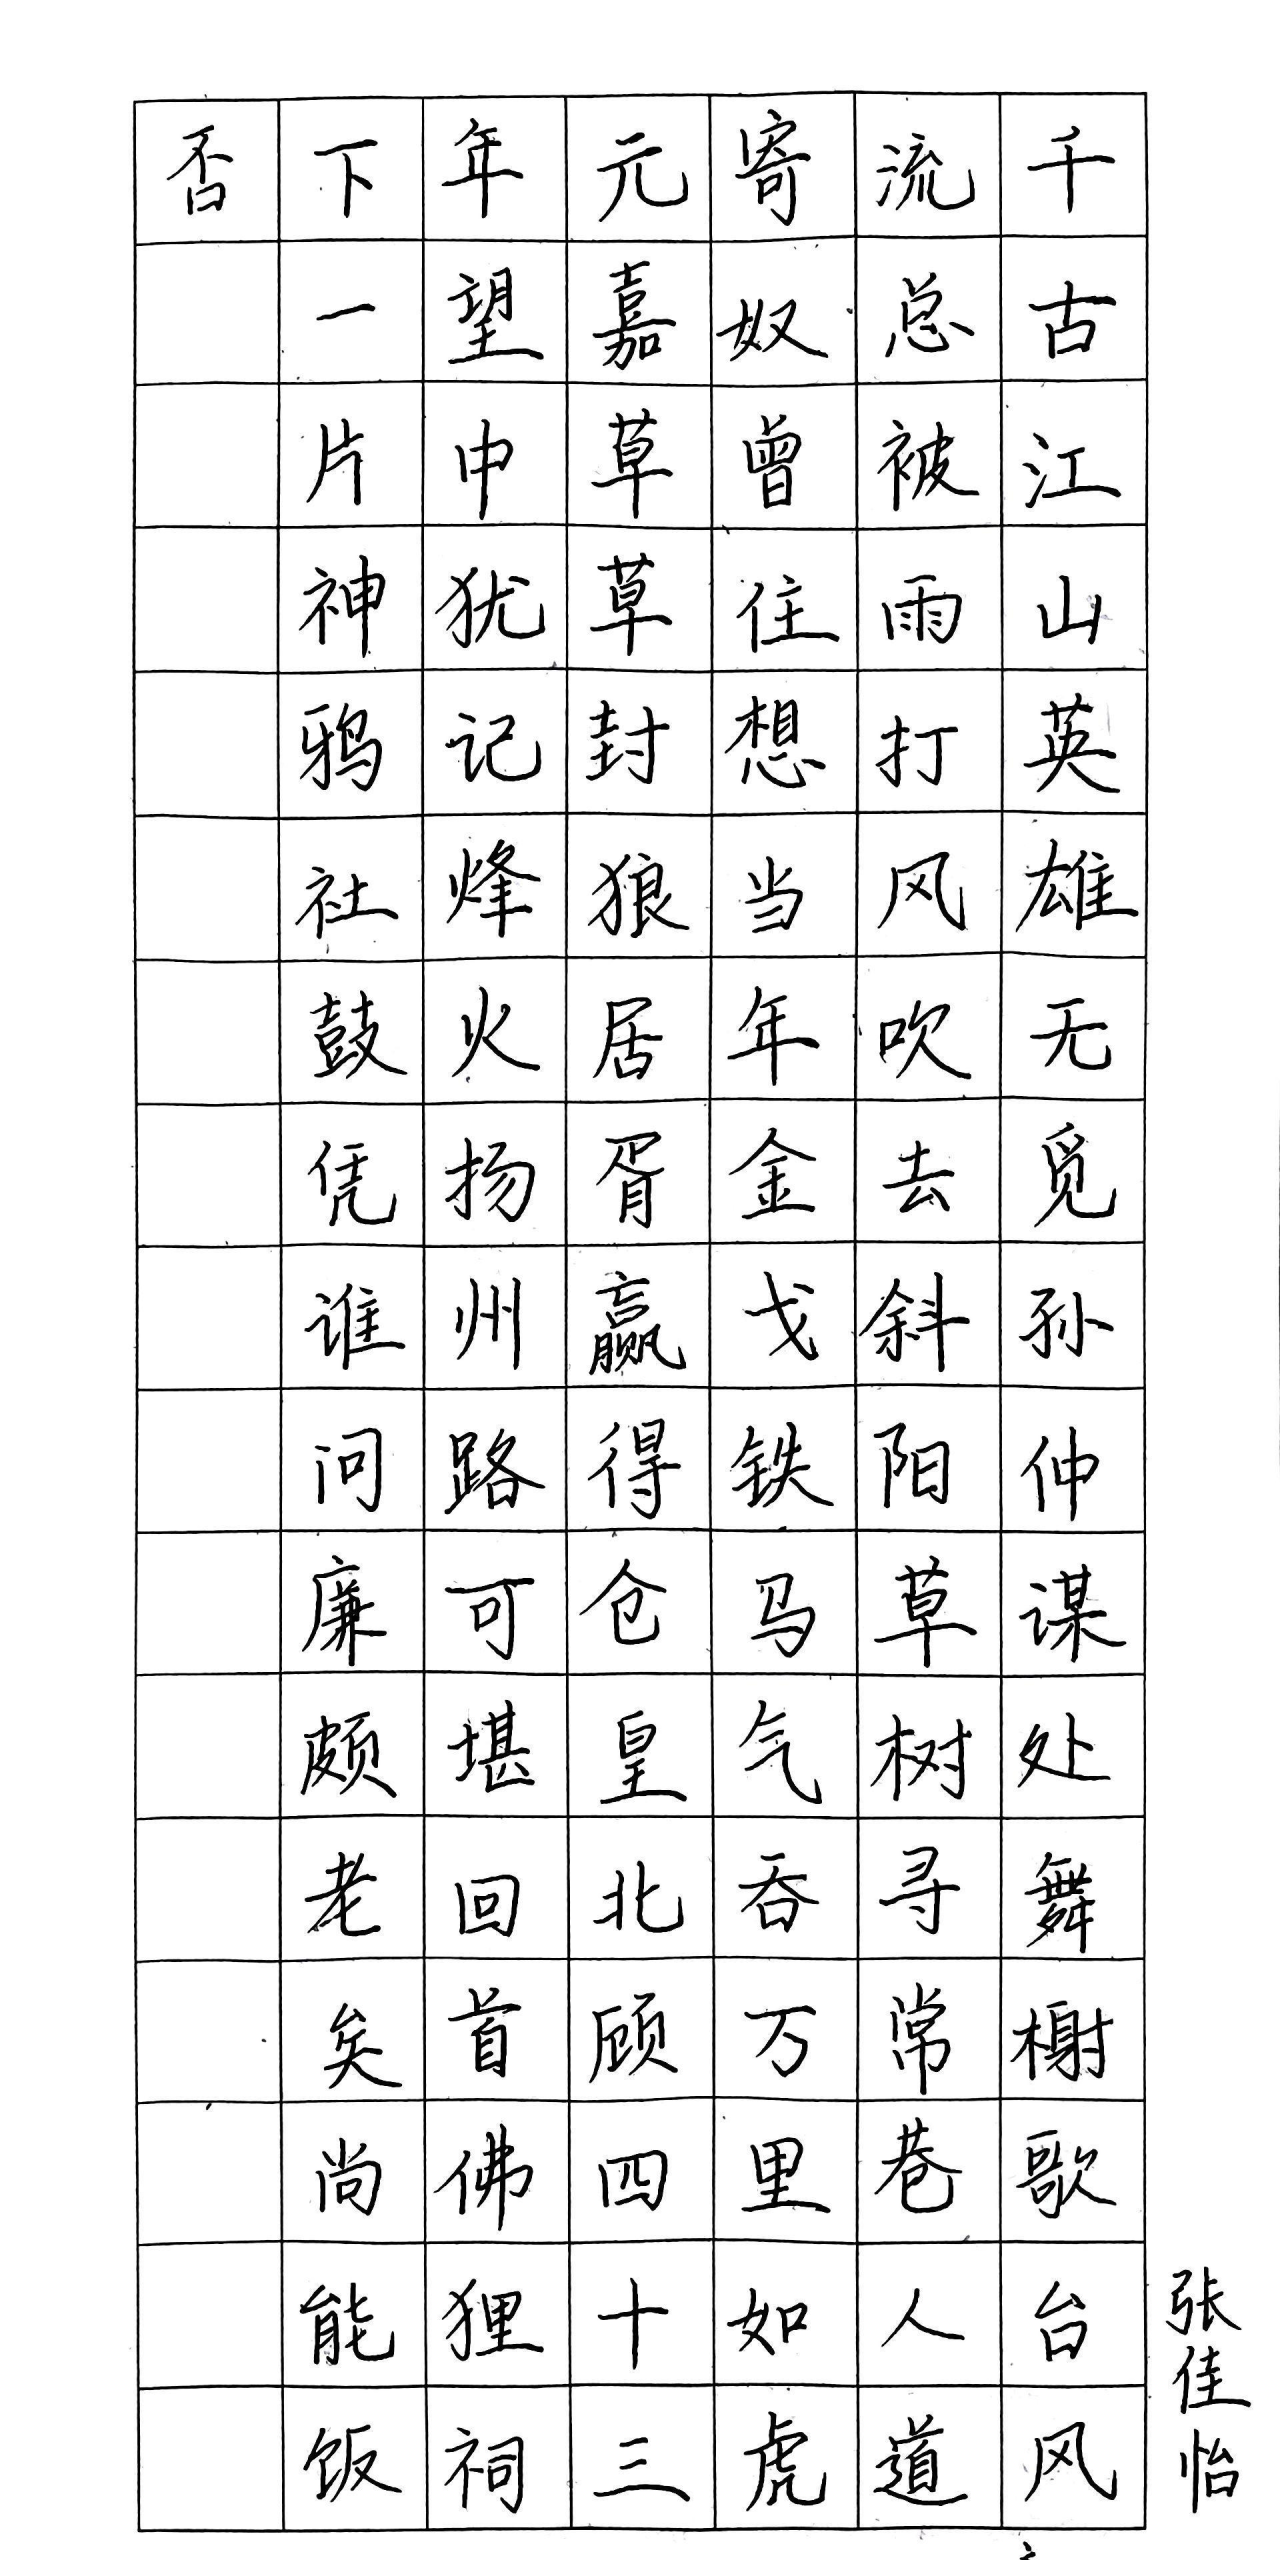 张佳怡
千古江山英雄无觅孙仲谋处舞榭歌台风
流总被雨打风吹去斜阳草树寻常巷人道
寄奴曾住想当年金戈铁马气吞万里如虎
元嘉草草封狼居胥赢得仓皇北顾四十三
年望中犹记烽火扬州路可堪回首佛狸祠
下一片神鸦社鼓凭谁问廉颇老矣尚能饭
否